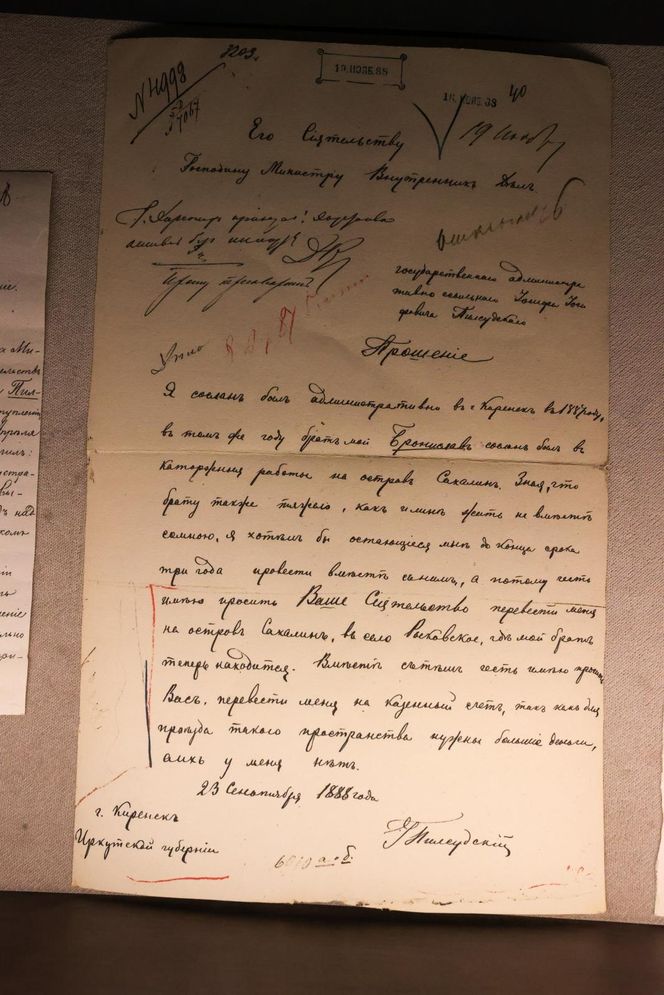 № 4998
3203
19. НОЯБ. 88
40
19 Ноября
Его Сіятельству
Господину Министру Внутреннихъ Дѣлъ
государственнаго администра
тивно ссыльнаго Іосифа Іоси
фовича Пилсудскаго
Прошеніе
Я сосланъ былъ административно въ г. Киренскъ въ 1887 году,
въ томъ же году братъ мой Брониславъ сосланъ былъ въ
каторжныя работы на островъ Сахалинъ. Зная, что
брату также тяжело, какъ и мнѣ жить не вмѣстѣ
со мною, я хотѣлъ бы остающіеся мнѣ до конца срока
три года провести вмѣстѣ съ нимъ, а потому честь
имѣю просить Ваше Сіятельство перевести меня
на островъ Сахалинъ, въ село Рыковское, гдѣ мой братъ
теперь находится. Вмѣстѣ съ тѣмъ честь имѣю просить
Васъ, перевести меня на казенный счетъ, такъ какъ для
проѣзда такого пространства нужны большіе деньги,
а ихъ у меня нѣтъ.
23 Сентября 1888 года
г. Киренскъ
Иркутской губерніи
І Пилсудскій
6010 а-б.